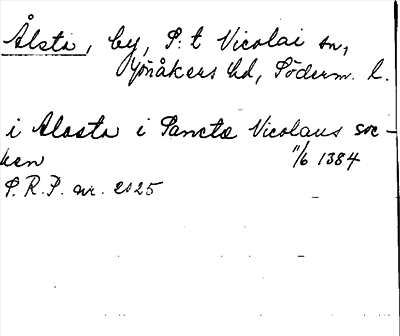 Ålsta, by, S:t Nicolai sn,
Jönåkers hd, Söderm. l.
i Alasta i Sancte Nicolaus soc-
ken 11/6 1384
S.R.P. nr. 2025